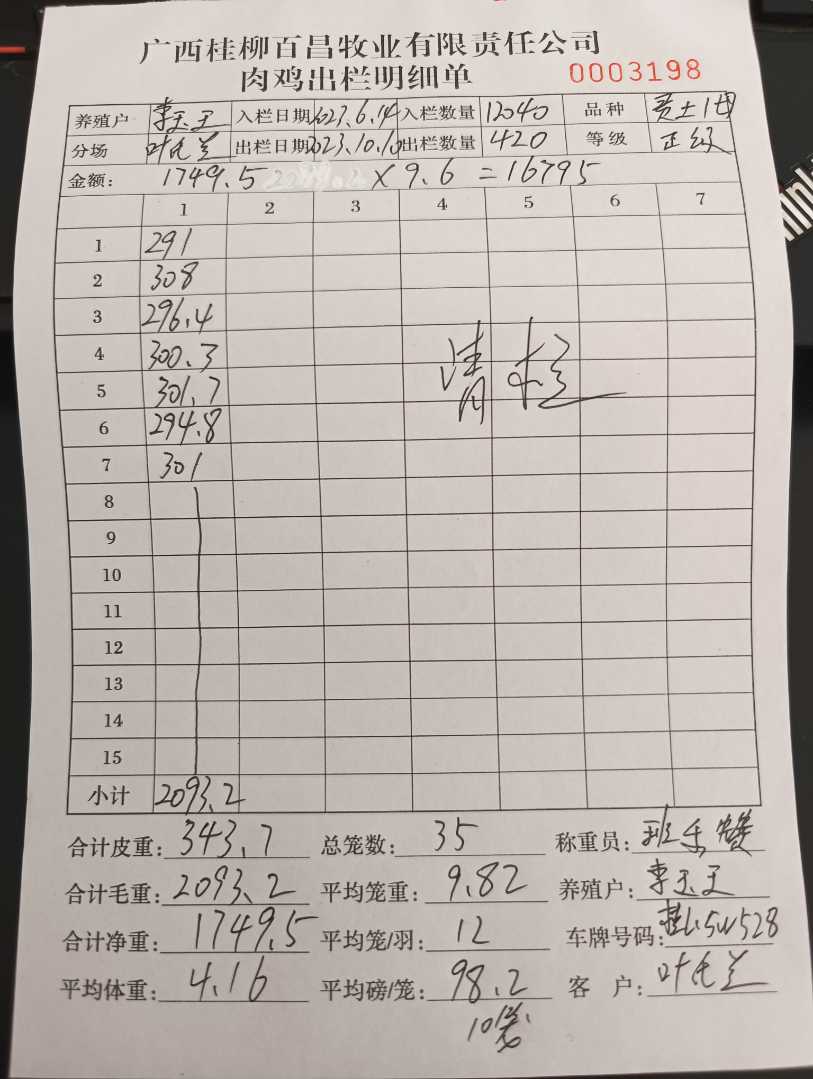 广西桂柳百昌牧业有限责任公司
肉鸡出栏明细单 0003198
养殖户 李玉王 入栏日期 2023.6.14 入栏数量 12040 品种 黄土1号
分场 出栏日期 2023.10.10 出栏数量 420 等级 正级
金额: 1749.5 × 9.6 = 16795
1 2 3 4 5 6 7
1 291
2 308
3 296.4
4 300.3
5 301.7
6 294.8
7 301
清
8
9
10
11
12
13
14
15
小计 2093.2
合计皮重: 343.7 总笼数: 35 称重员: 班
合计毛重: 2093.2 平均笼重: 9.82 养殖户: 李玉王
合计净重: 1749.5 平均笼/羽: 12 车牌号码: 桂L5W528
平均体重: 4.16 平均磅/笼: 98.2 客 户: 叶
10笼